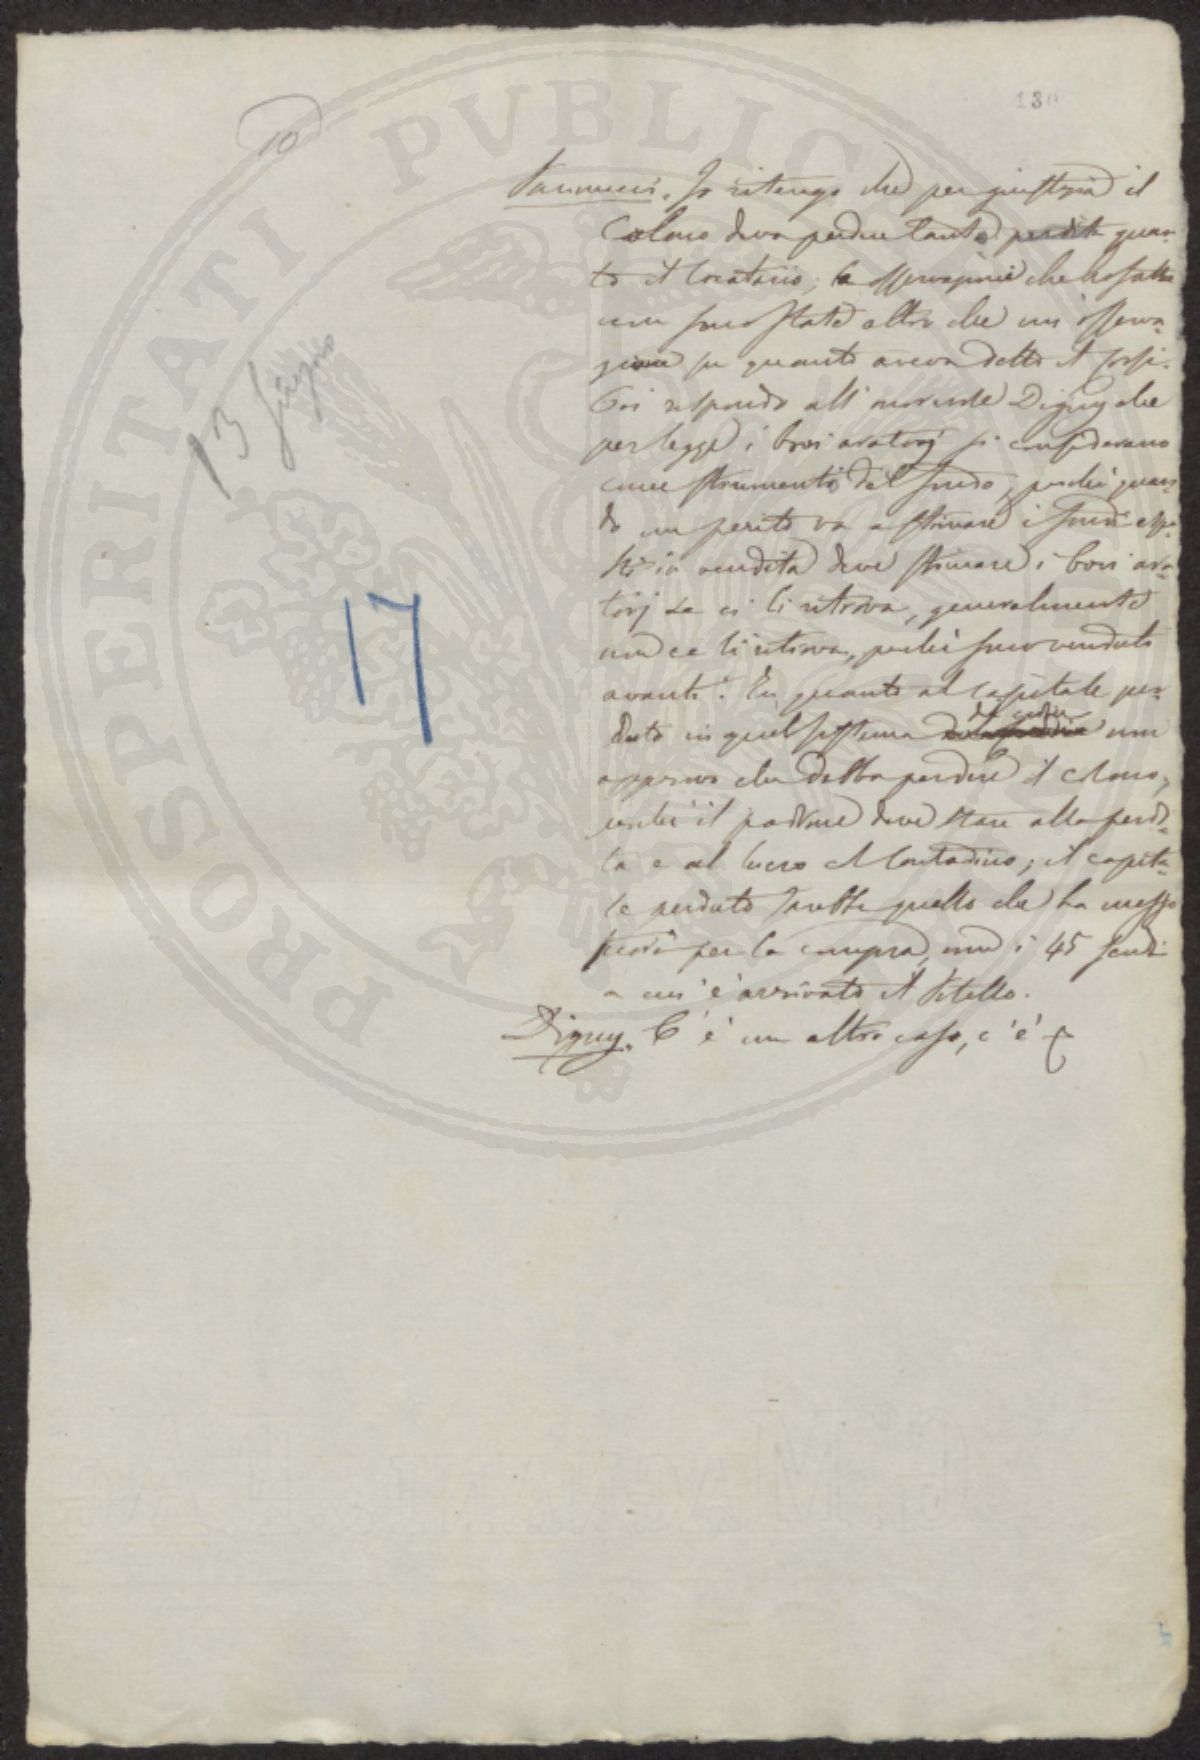 130
10
Vannucci. Io ritengo che per giustizia il
Colono deva perdere tanto perdita quan-
to il locatario; le osservazioni che ho fatte
non sono state altro che un' osserva-
zione su quanto aveva detto il
Poi rispondo all' onorevole Digny che
per legge i bovi aratorj si considerano
come strumenti del fondo, perchè quan-
do un perito va a stimare i fondi espo-
sti in vendita deve stimare i bovi ara-
torj se ci li ritrova, generalmente
non ce li ritrova, perchè sono venduti
avanti. In quanto al capitale per-
duto in quel sistema non
approvo che debba perdere il colono,
perchè il padrone deve stare alla perdi-
ta e al lucro col Contadino; il capita-
le perduto sarebbe quello che ha messo
fuori per la compra, non i 45 scudi
a cui è arrivato il vitello.
Digny. C' è un altro caso, c' è
13 Giugno
17
PROSPERITATI PVBLIC